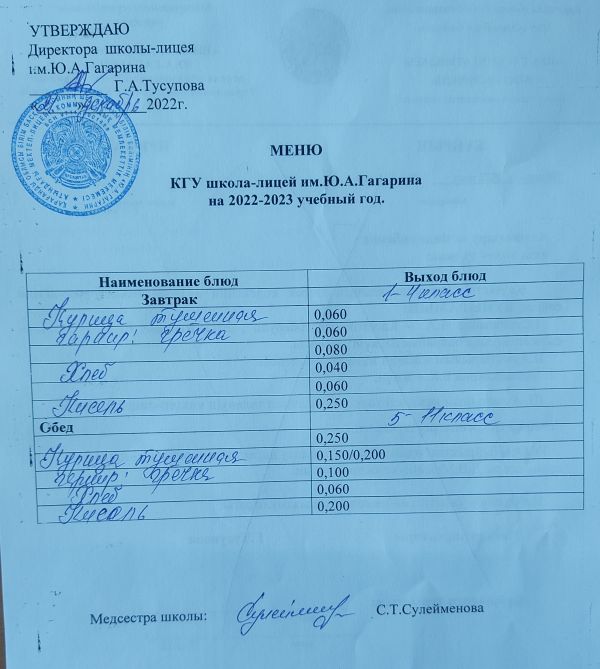 УТВЕРЖДАЮ
Директора школы-лицея
им.Ю.А.Гагарина
Г.А.Тусупова
декабрь 2022г.
МЕНЮ
КГУ школа-лицей им.Ю.А.Гагарина
на 2022-2023 учебный год.
Наименование блюд Выход блюд
Завтрак 1-4 класс
Курица тушенная 0,060
гарнир: гречка 0,060
0,080
Хлеб 0,040
0,060
Кисель 0,250
Обед 5-11 класс
0,250
Курица тушенная 0,150/0,200
гарнир: гречка 0,100
Хлеб 0,060
Кисель 0,200
Медсестра школы: С.Т.Сулейменова